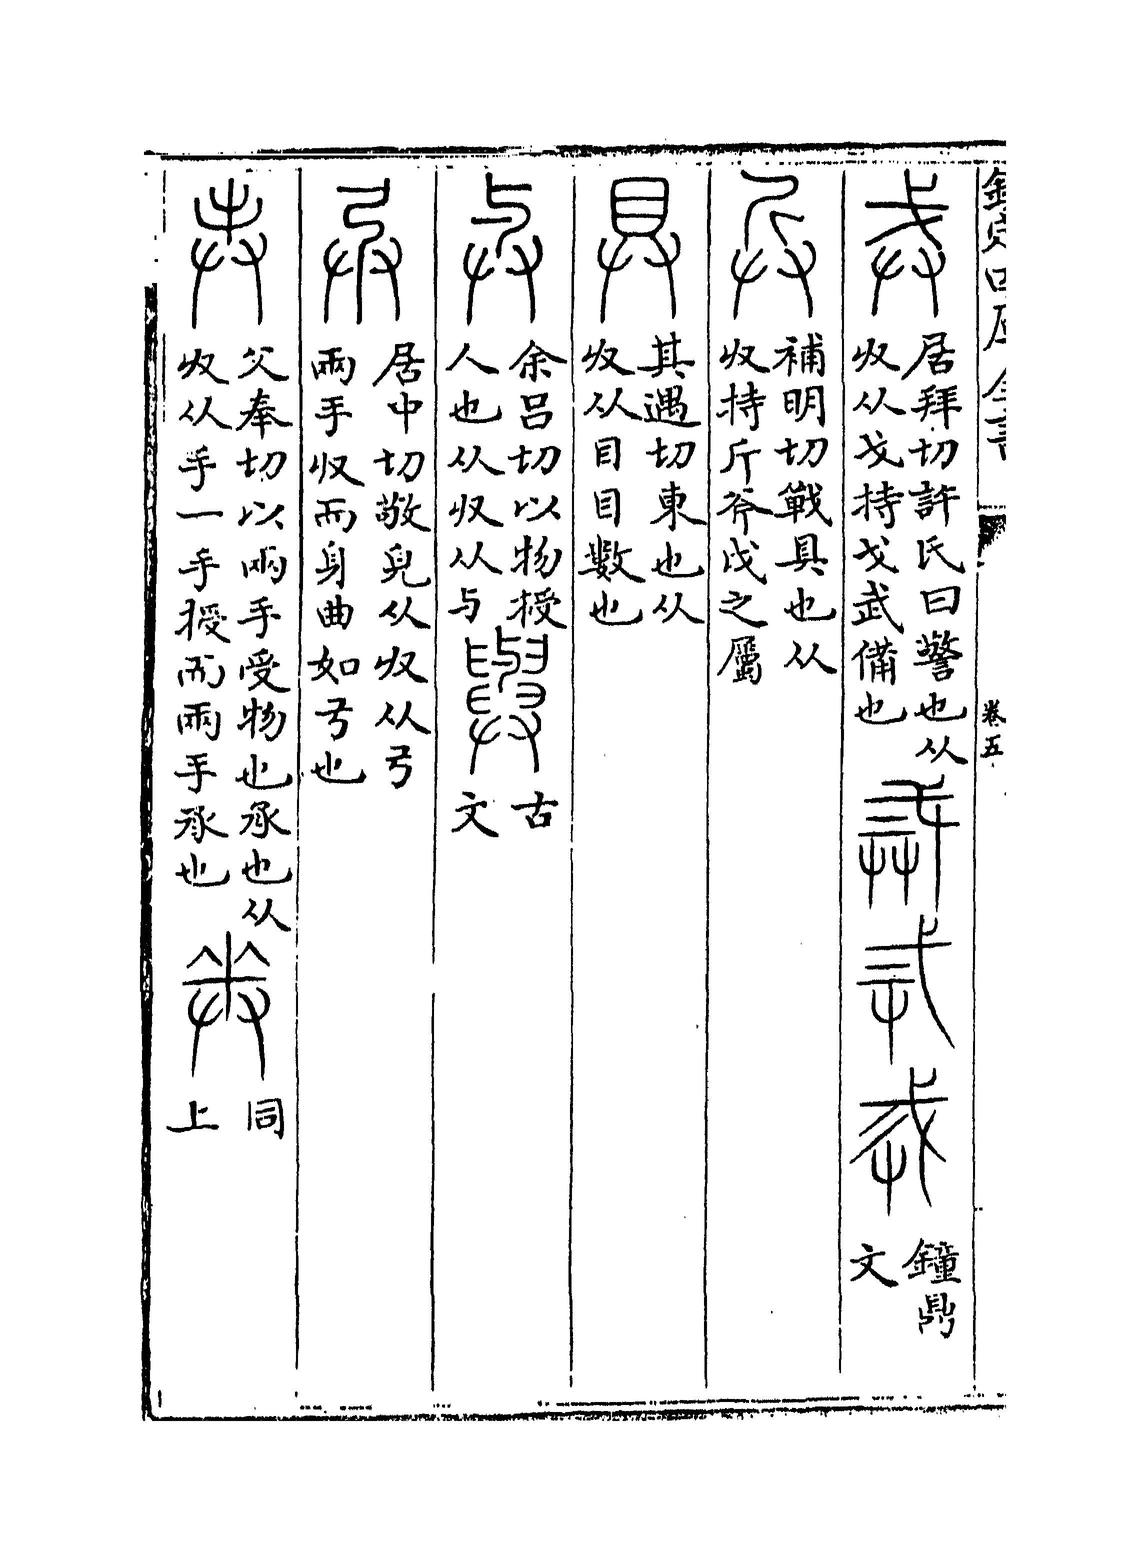 欽定四庫全書
卷五
戒
居拜切許氏曰警也从
収从戈持戈武備也
鐘鼎
文
兵
補明切戰具也从
収持斤斧戉之屬
具
其遇切東也从
収从目目數也
余吕切以物授
人也从収从与
與
古
文
居中切敬皃从収从弓
兩手収而身曲如弓也
父奉切以兩手受物也承也从
収从手一手授而兩手承也
同
上